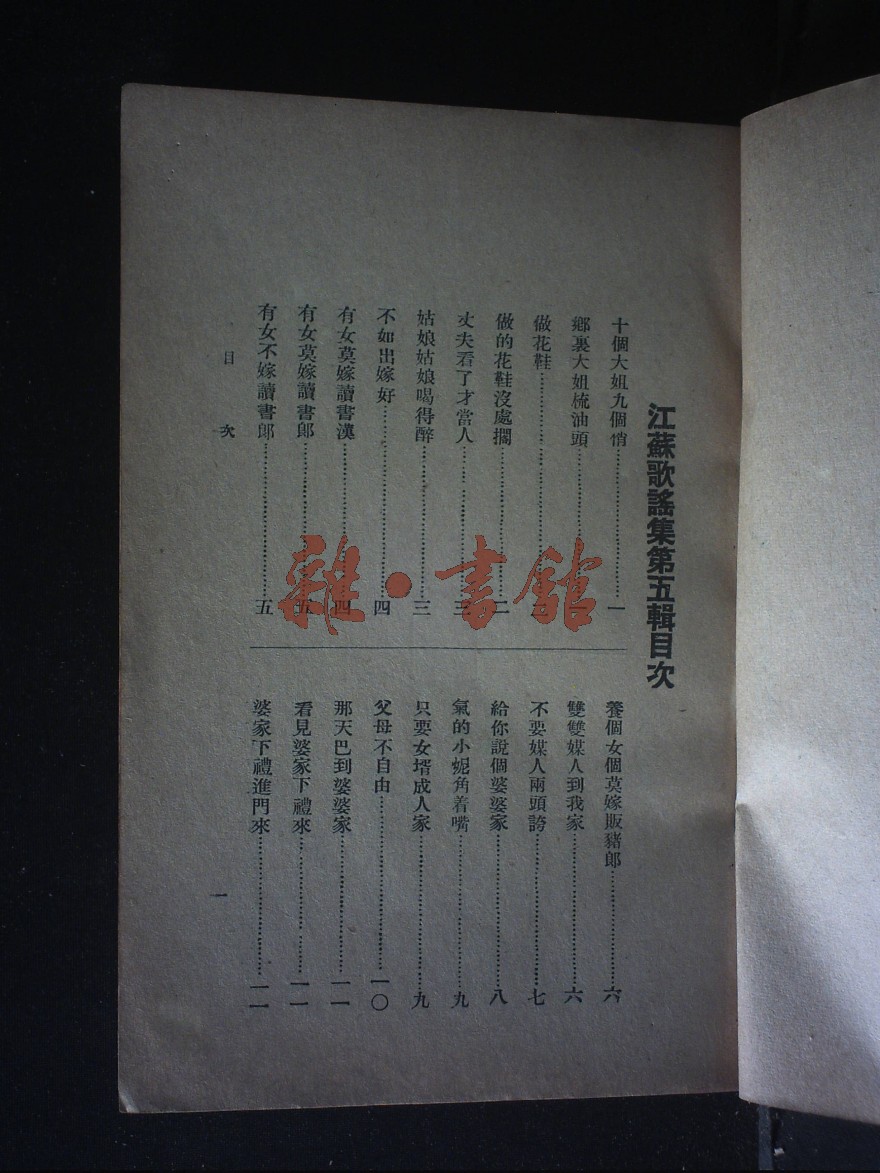 江蘇歌謠集第五輯目次
十個大姐九個悄……一
鄉裏大姐梳油頭……
做花鞋……
做的花鞋沒處擱……二
丈夫看了才當人……三
姑娘姑娘喝得醉……三
不如出嫁好……四
有女莫嫁讀書漢……四
有女莫嫁讀書郎……五
有女不嫁讀書郎……五
養個女個莫嫁販豬郎……六
雙雙媒人到我家……六
不要媒人兩頭誇……七
給你說個婆婆家……八
氣的小妮角着嘴……九
只要女壻成人家……九
父母不自由……一〇
那天巴到婆婆家……一一
看見婆家下禮來……一一
婆家下禮進門來……一一
目次
一
雜·書館